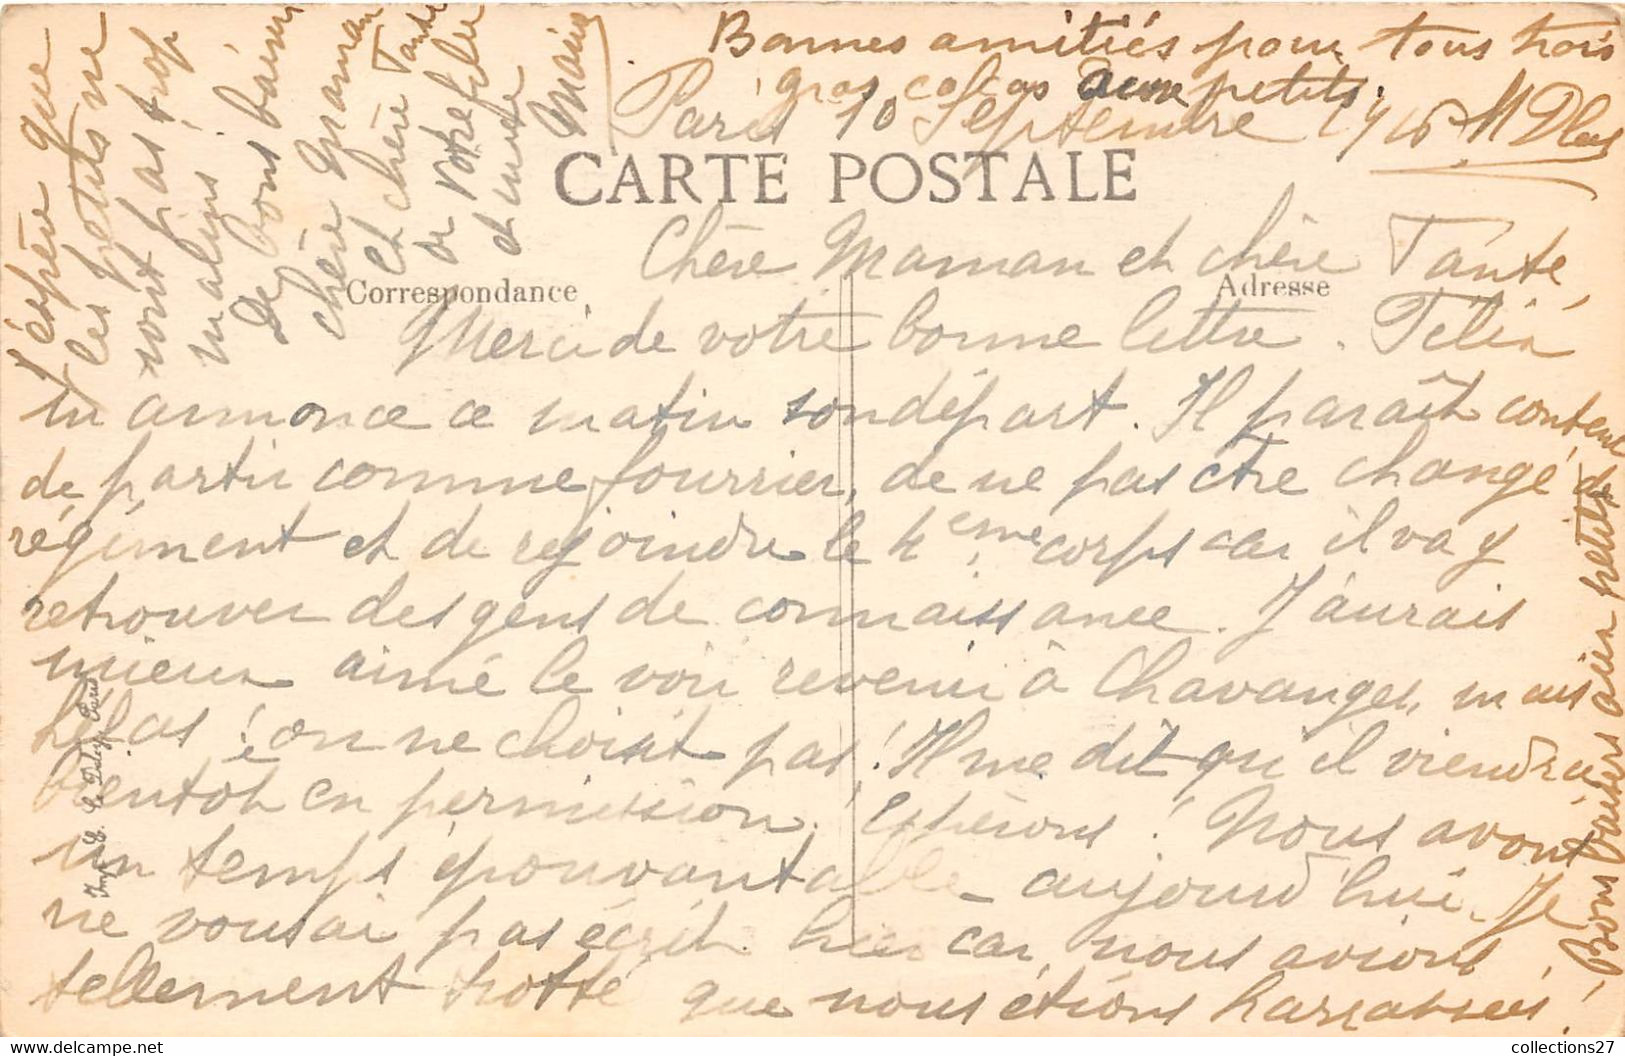 Bonnes amitiés pour tous trois
gros aux petits.
Paris 10 Septembre 1916
CARTE POSTALE
Correspondance
Adresse
Chère Maman et chère Tante,
Merci de votre bonne lettre. Félix
m'annonce ce matin son départ. Il paraît content
de partir comme fourrier, de ne pas être changé de
régiment et de rejoindre le 4eme corps car il va y
retrouver des gens de connaissance. J'aurais
mieux aimé le voir revenir à Chavanges, mais
hélas ! on ne choisit pas ! Il me dit qu'il viendra
bientôt en permission. Espérons ! Nous avons
un temps épouvantable aujourd'hui. Je
ne vous ai pas écrit hier car nous avions
tellement trotté que nous étions harrassées !
Bons baisers aux petits
J'espère que
les petits ne
sont pas trop
malins !
De bons baisers
chère Maman
et chère Tante
de votre fille
et nièce
Imp. E. Le Deley, Paris
collections27